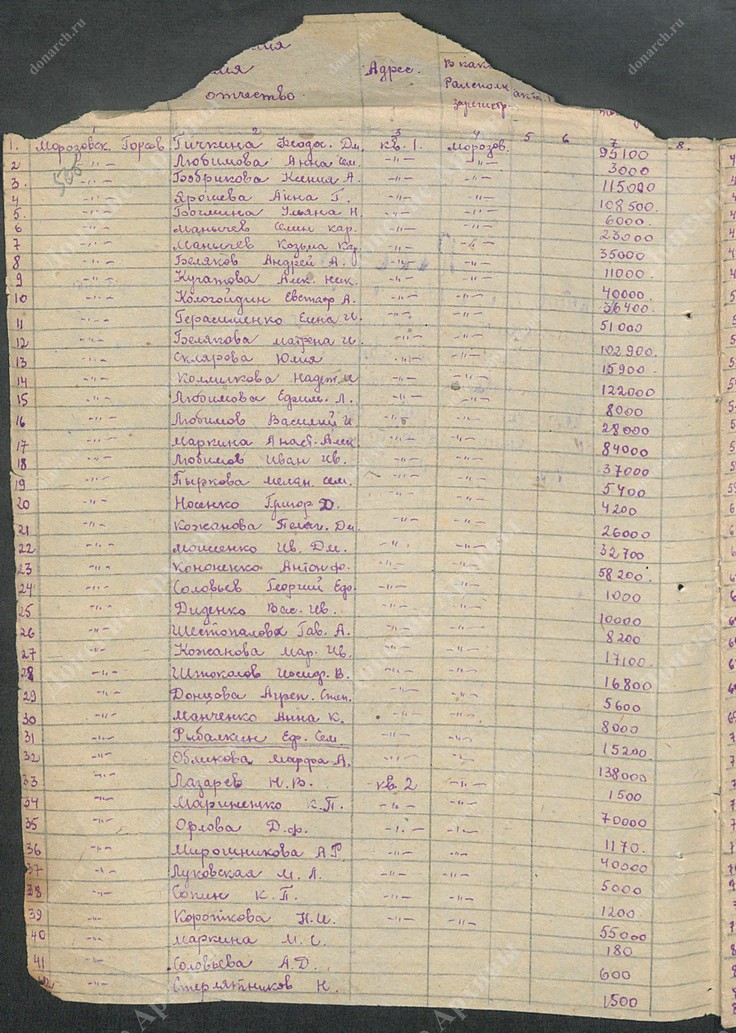 отчество
Адрес.
зарегистр.
1 2 3 4 5 6 7 8.
1. Морозовск. Горсов. Гичкина Феодос. Дм. кв. 1. морозов. 95100
2 -"- Любимова Анна Сем. -"- -"- 3000
3. -"- Бобрикова Ксения А. -"- 115000
4 -"- Ярошева Анна Г. -"- -"- 108500.
5. -"- Богмина Ульяна Н. -"- -"- 6000.
6 -"- Манычев Семин кар. -"- -"- 23000
7 -"- Манычев Козьма Кар. -"- -"- 35000
8 -"- Беляков Андрей А. -"- -"- 11000
9 -"- Кугатова Алек. Ник. -"- -"- 40000.
10 -"- Кологойдин Евстаф А. -"- -"- 36400.
11 -"- Герасименко Елена И. -"- -"- 51000
12 -"- Белякова матрена И. -"- -"- 102900.
13 -"- Склярова Юлия -"- -"- 15900.
14 -"- Колмыкова Надеж. И -"- -"- 122000
15 -"- Любимова Ефим. Л. -"- -"- 8000
16 -"- Любимов Василий И -"- -"- 28000
17 -"- Маркина Анаст. Алек -"- -"- 84000
18 -"- Любимов Иван Ив. -"- -"- 37000
19 -"- Пыркова мелан. Сем. -"- -"- 5400
20 -"- Носенко Григор Д. -"- -"- 4200
21 -"- Кожанова Пелаг. Дм. -"- -"- 26000
22 -"- Моисеенко Ив. Дм. -"- -"- 32700
23 -"- Кононенко Антон ф. -"- -"- 58200.
24 -"- Соловьев Георгий Еф. -"- -"- 1000
25 -"- Диденко Вас. Ив. -"- -"- 10000
26 -"- Шестопалова Гав. А. -"- -"- 8200
27 -"- Кожанова Мар. Ив. -"- -"- 17100.
28 -"- Штоколов Иосиф. В. -"- -"- 16800
29 -"- Донцова Агреп. Степ. -"- -"- 5600
30 -"- Манченко Анна К. -"- -"- 8000
31 -"- Рыбалкин Еф. Сем -"- -"- 15200.
32 -"- Обликова Марфа А. -"- -"- 138000
33 -"- Лазарев Н. В. кв. 2 -"- 1500
34 -"- Мариненко К. П. -"- -"- 70000
35 -"- Орлова Д. ф. -"- -"- 1170.
36 -"- Мирошникова А. Р. -"- -"- 40000
37 -"- Луковская М. Л. -"- -"- 5000
38 -"- Сопин К. П. -"- -"- 1200
39 -"- Короткова Н. И. -"- -"- 55000
40 -"- Маркина М. С. 180
41 -"- Соловьева А. Д. 600
42 -"- Стерлятников Н. 1500
donarch.ru